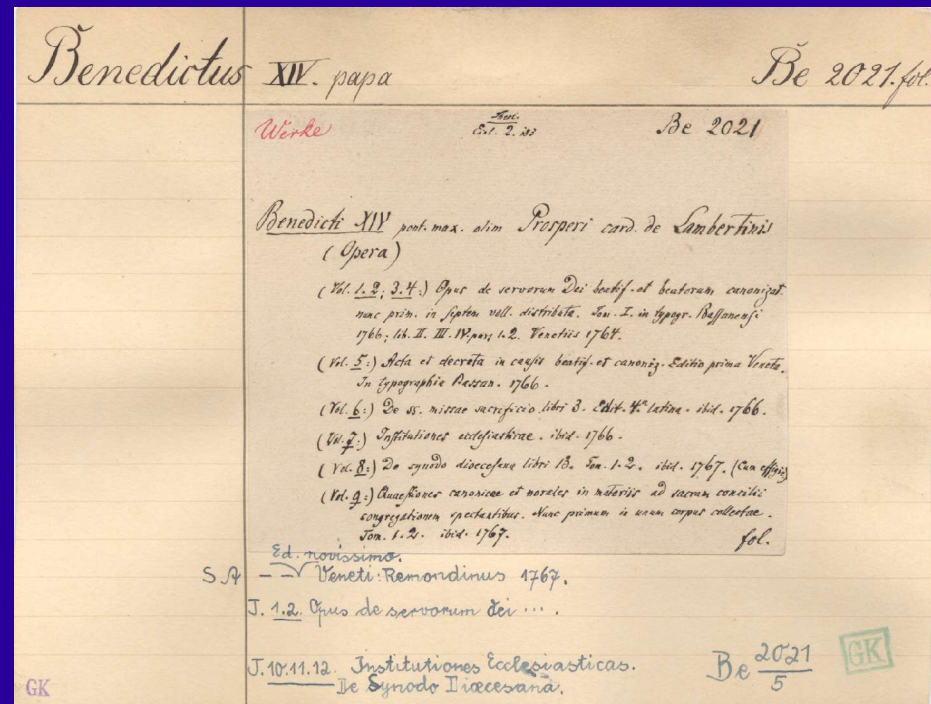 Benedictus XIV. papa Be 2021.fol.
Werke Be 2021
Benedicti XIV pont. max. olim Prosperi card. de Lambertinis
(Opera)
(Vol. 1.2; 3.4:) Opus de servorum Dei beatif. et beatorum canonizat.
nunc prim. in septem voll. distributa. Tom. I. in typogr. Bassanensi
1766; lib. II. III. IV. pars 1.2. Venetiis 1764.
(Vol. 5:) Acta et decreta in causis beatif. et canoniz. Editio prima Veneta.
In typographia Bassan. 1766.
(Vol. 6:) De ss. missae sacrificio libri 3. Edit. 4.a latina. ibid. 1766.
(Vol. 7:) Institutiones ecclesiasticae. ibid. 1766.
(Vol. 8:) De synodo dioecesana libri 13. Tom. 1.2. ibid. 1767. (Cum effigie)
(Vol. 9:) Quaestiones canonicae et morales in materiis ad sacram concilii
congregationem spectantibus. Nunc primum in unum corpus collectae.
Tom. 1.2. ibid. 1767. fol.
Ed. novissima.
S.A — — Veneti: Remondinus 1767.
J. 1.2. Opus de servorum Dei ... .
J. 10.11.12. Institutiones Ecclesiasticas. Be 2021/5 GK
GK De Synodo Diœcesana.